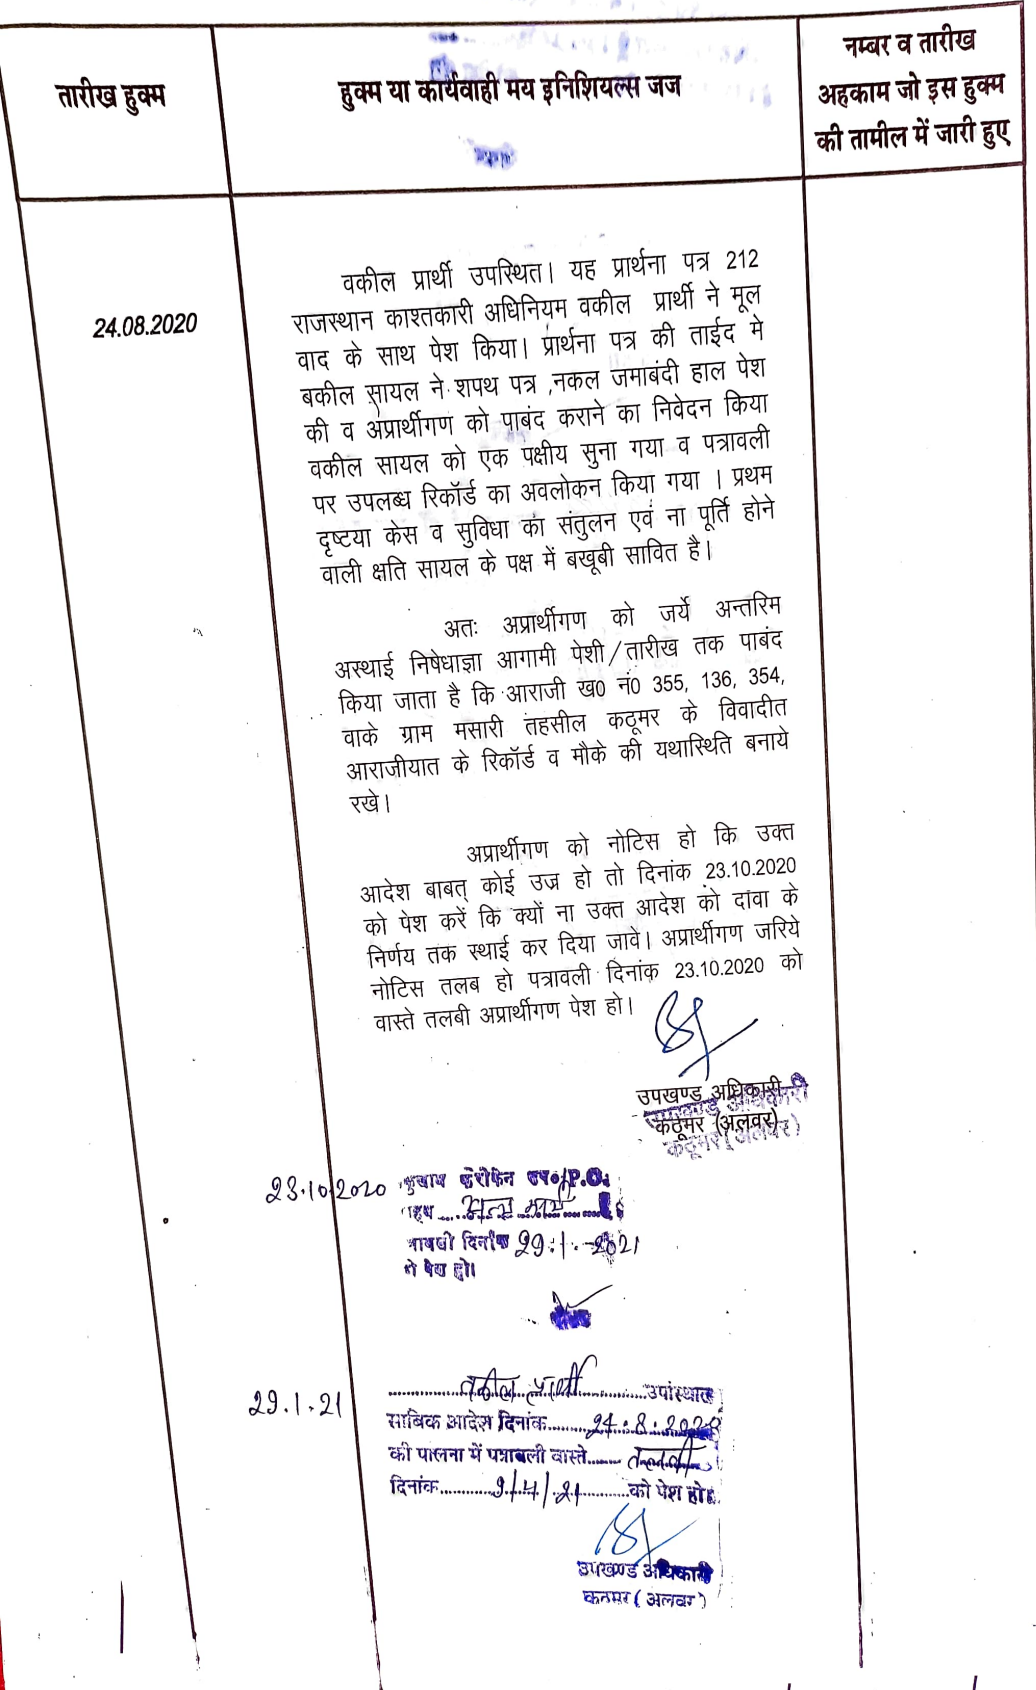 तारीख हुक्म
हुक्म या कार्यवाही मय इनिशियल्स जज
नम्बर व तारीख
अहकाम जो इस हुक्म
की तामील में जारी हुए
24.08.2020
वकील प्रार्थी उपस्थित। यह प्रार्थना पत्र 212
राजस्थान काश्तकारी अधिनियम वकील प्रार्थी ने मूल
वाद के साथ पेश किया। प्रार्थना पत्र की ताईद मे
बकील सायल ने शपथ पत्र ,नकल जमाबंदी हाल पेश
की व अप्रार्थीगण को पाबंद कराने का निवेदन किया
वकील सायल को एक पक्षीय सुना गया व पत्रावली
पर उपलब्ध रिकॉर्ड का अवलोकन किया गया । प्रथम
दृष्टया केस व सुविधा का संतुलन एवं ना पूर्ति होने
वाली क्षति सायल के पक्ष में बखूबी सावित है।
अतः अप्रार्थीगण को जर्ये अन्तरिम
अस्थाई निषेधाज्ञा आगामी पेशी/तारीख तक पाबंद
किया जाता है कि आराजी ख0 नं0 355, 136, 354,
वाके ग्राम मसारी तहसील कठूमर के विवादीत
आराजीयात के रिकॉर्ड व मौके की यथास्थिति बनाये
रखे।
अप्रार्थीगण को नोटिस हो कि उक्त
आदेश बाबत् कोई उज्र हो तो दिनांक 23.10.2020
को पेश करें कि क्यों ना उक्त आदेश को दावा के
निर्णय तक स्थाई कर दिया जावे। अप्रार्थीगण जरिये
नोटिस तलब हो पत्रावली दिनांक 23.10.2020 को
वास्ते तलबी अप्रार्थीगण पेश हो।
उपखण्ड अधिकारी
कठूमर (अलवर)
उपखण्ड अधिकारी
कठूमर (अलवर)
23.10.2020
P.O.
अन्य कार्य
दिनांक 29.1.2021
पेश हो।
29.1.21
वकील प्रार्थी उपस्थित
साबिक आदेश दिनांक 24.8.2020
की पालना में पत्रावली वास्ते तलबी
दिनांक 9/4/21 को पेश हो।
उपखण्ड अधिकारी
कठूमर (अलवर)